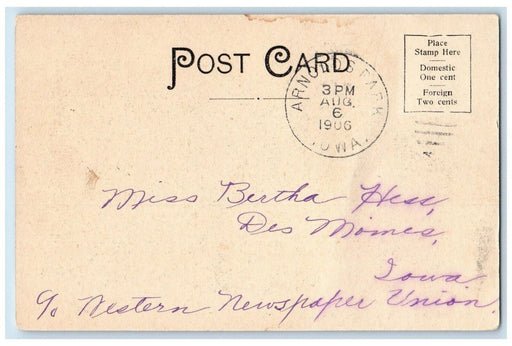 POST CARD
Place
Stamp Here
Domestic
One cent
Foreign
Two cents
ARNOLDS PARK
3 PM
AUG.
6
1906
IOWA.
Miss Bertha Hess,
Des Moines,
Iowa
℅ Western Newspaper Union.